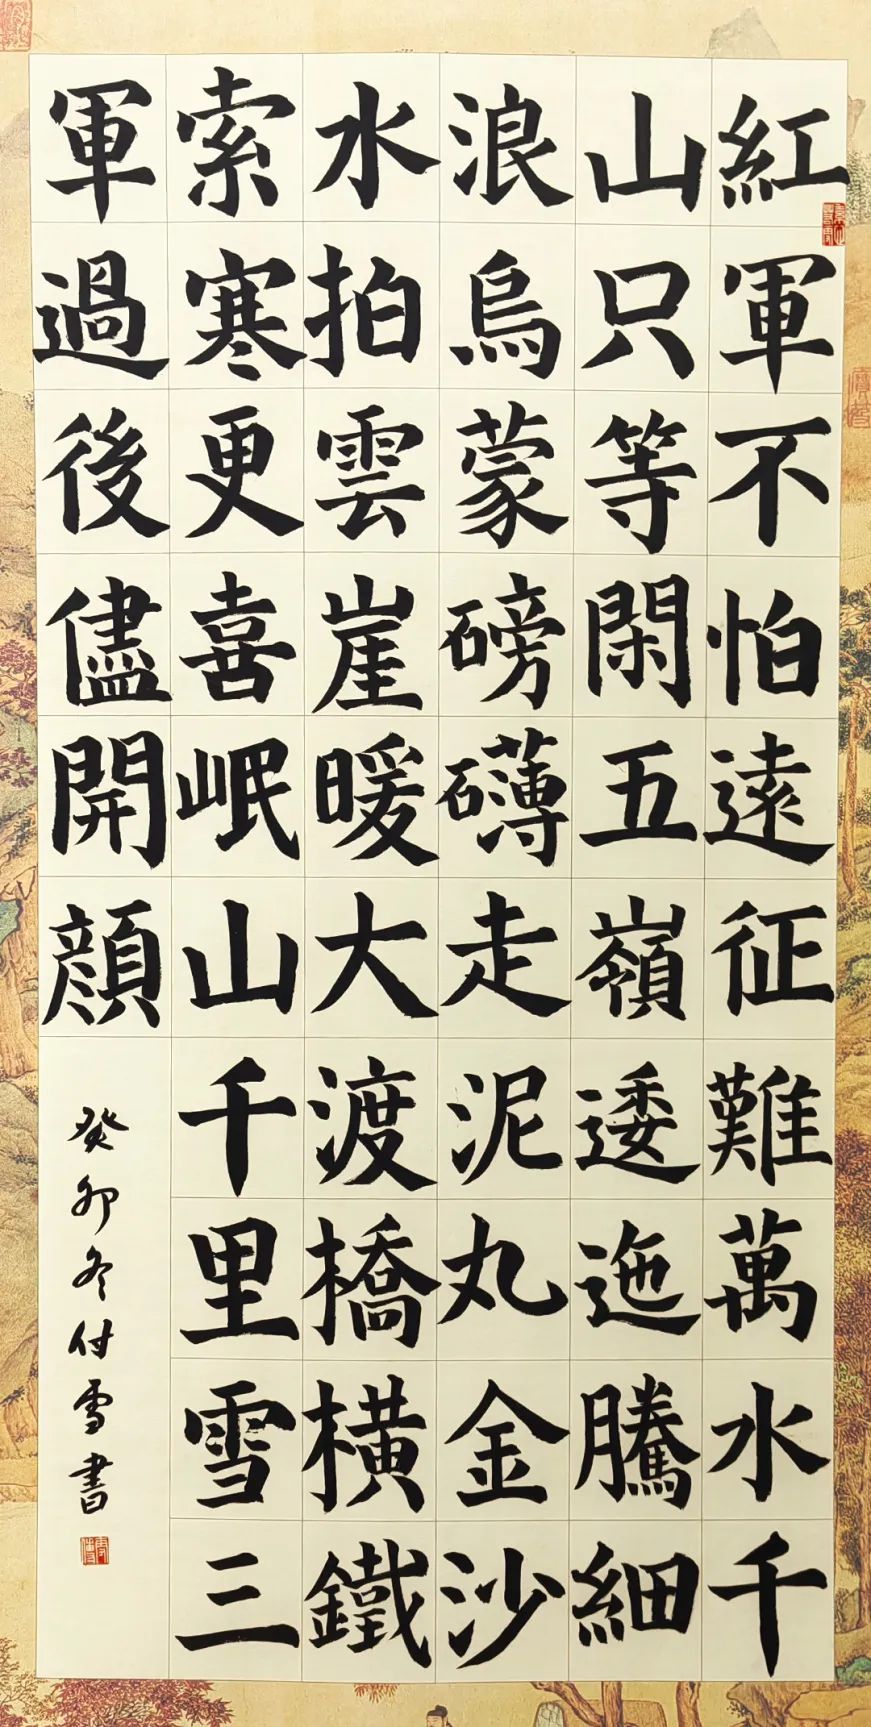 紅軍不怕遠征難萬水千
山只等閑五嶺逶迤騰細
浪烏蒙磅礴走泥丸金沙
水拍雲崖暖大渡橋橫鐵
索寒更喜岷山千里雪三
軍過後儘開顔
癸卯冬付雪書